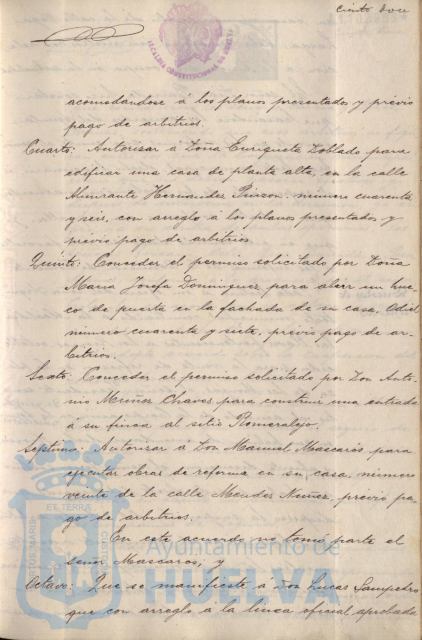 Ciento doce
ALCALDIA CONSTITUCIONAL DE HUELVA
acomodandose á los planos presentados y previo
pago de arbitrios.
Cuarto: Autorizar á Doña Enriqueta Doblado para
edificar una casa de planta alta, en la calle
Almirante Hernandez Pinzon, número cuarenta
y seis, con arreglo á los planos presentados y
previo pago de arbitrios.
Quinto: Conceder el permiso solicitado por Doña
Maria Josefa Dominguez para abrir un hue-
co de puerta en la fachada de su casa, Odiel
número cuarenta y siete, previo pago de ar-
bitrios.
Sexto: Conceder el permiso solicitado por Don Anto-
nio Chaves para construir una entrada
á su finca al sitio Romeralejo.
Séptimo: Autorizar á Don Manuel Mascarós para
ejecutar obras de reforma en su casa, número
veinte de la calle Mendez Nuñez, previo pa-
go de arbitrios.
En este acuerdo no tomó parte el
señor Mascaros; y
Octavo: Que se manifieste á Don Lucas Sampedro
que con arreglo á la linea oficial aprobada
ET TERRÆ
PORTUS MARIS
CUSTODIA
Ayuntamiento de
HUELVA